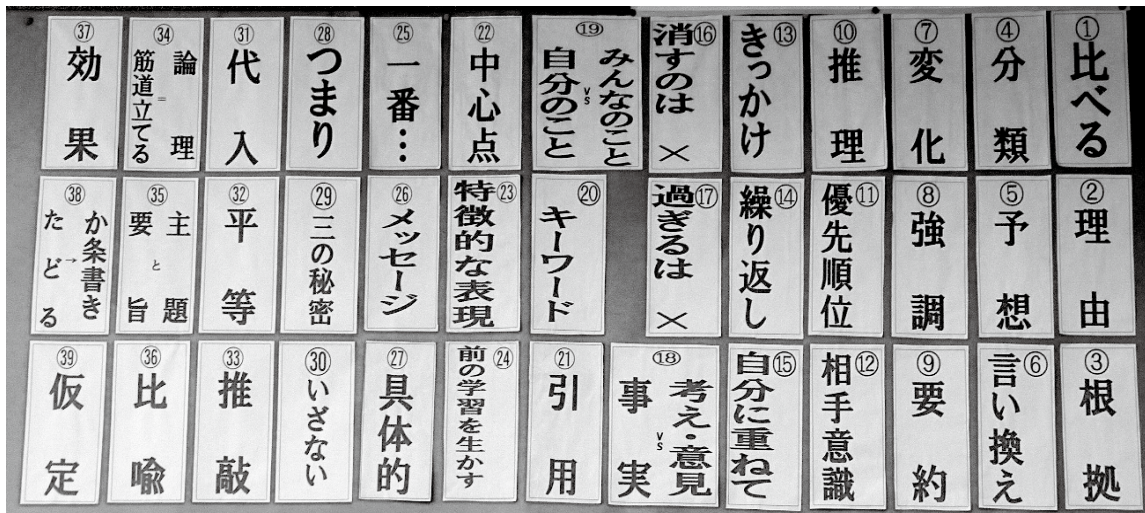 ①比べる
②理由
③根拠
④分類
⑤予想
⑥言い換え
⑦変化
⑧強調
⑨要約
⑩推理
⑪優先順位
⑫相手意識
⑬きっかけ
⑭繰り返し
⑮自分に重ねて
⑯消すのは×
⑰過ぎるは×
⑱考え・意見
vs
事実
⑲みんなのこと
vs
自分のこと
⑳キーワード
㉑引用
㉒中心点
㉓特徴的な表現
㉔前の学習を生かす
㉕一番…
㉖メッセージ
㉗具体的
㉘つまり
㉙三の秘密
㉚いざない
㉛代入
㉜平等
㉝推敲
㉞論理
=
筋道立てる
㉟主題
と
要旨
㊱比喩
㊲効果
㊳か条書き
→
たどる
㊴仮定